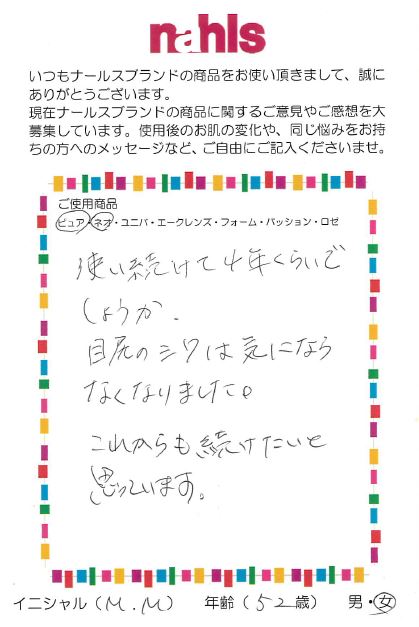 nahls
いつもナールスブランドの商品をお使い頂きまして、誠に
ありがとうございます。
現在ナールスブランドの商品に関するご意見やご感想を大
募集しています。使用後のお肌の変化や、同じ悩みをお持
ちの方へのメッセージなど、ご自由にご記入くださいませ。
ご使用商品
ピュア・ネオ・ユニバ・エークレンズ・フォーム・パッション・ロゼ
使い続けて4年くらいで
しょうか.
目尻のシワは気になら
なくなりました。
これからも続けたいと
思っています。
イニシャル(M.M) 年齢(52歳) 男・女